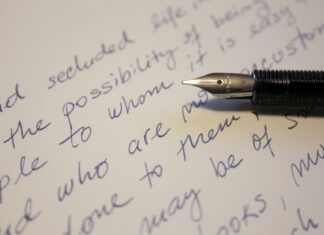 secluded life in
the possibility of being
ple to whom it is easy
nd who are not accustom
done to them
may be of so
ooks, mu